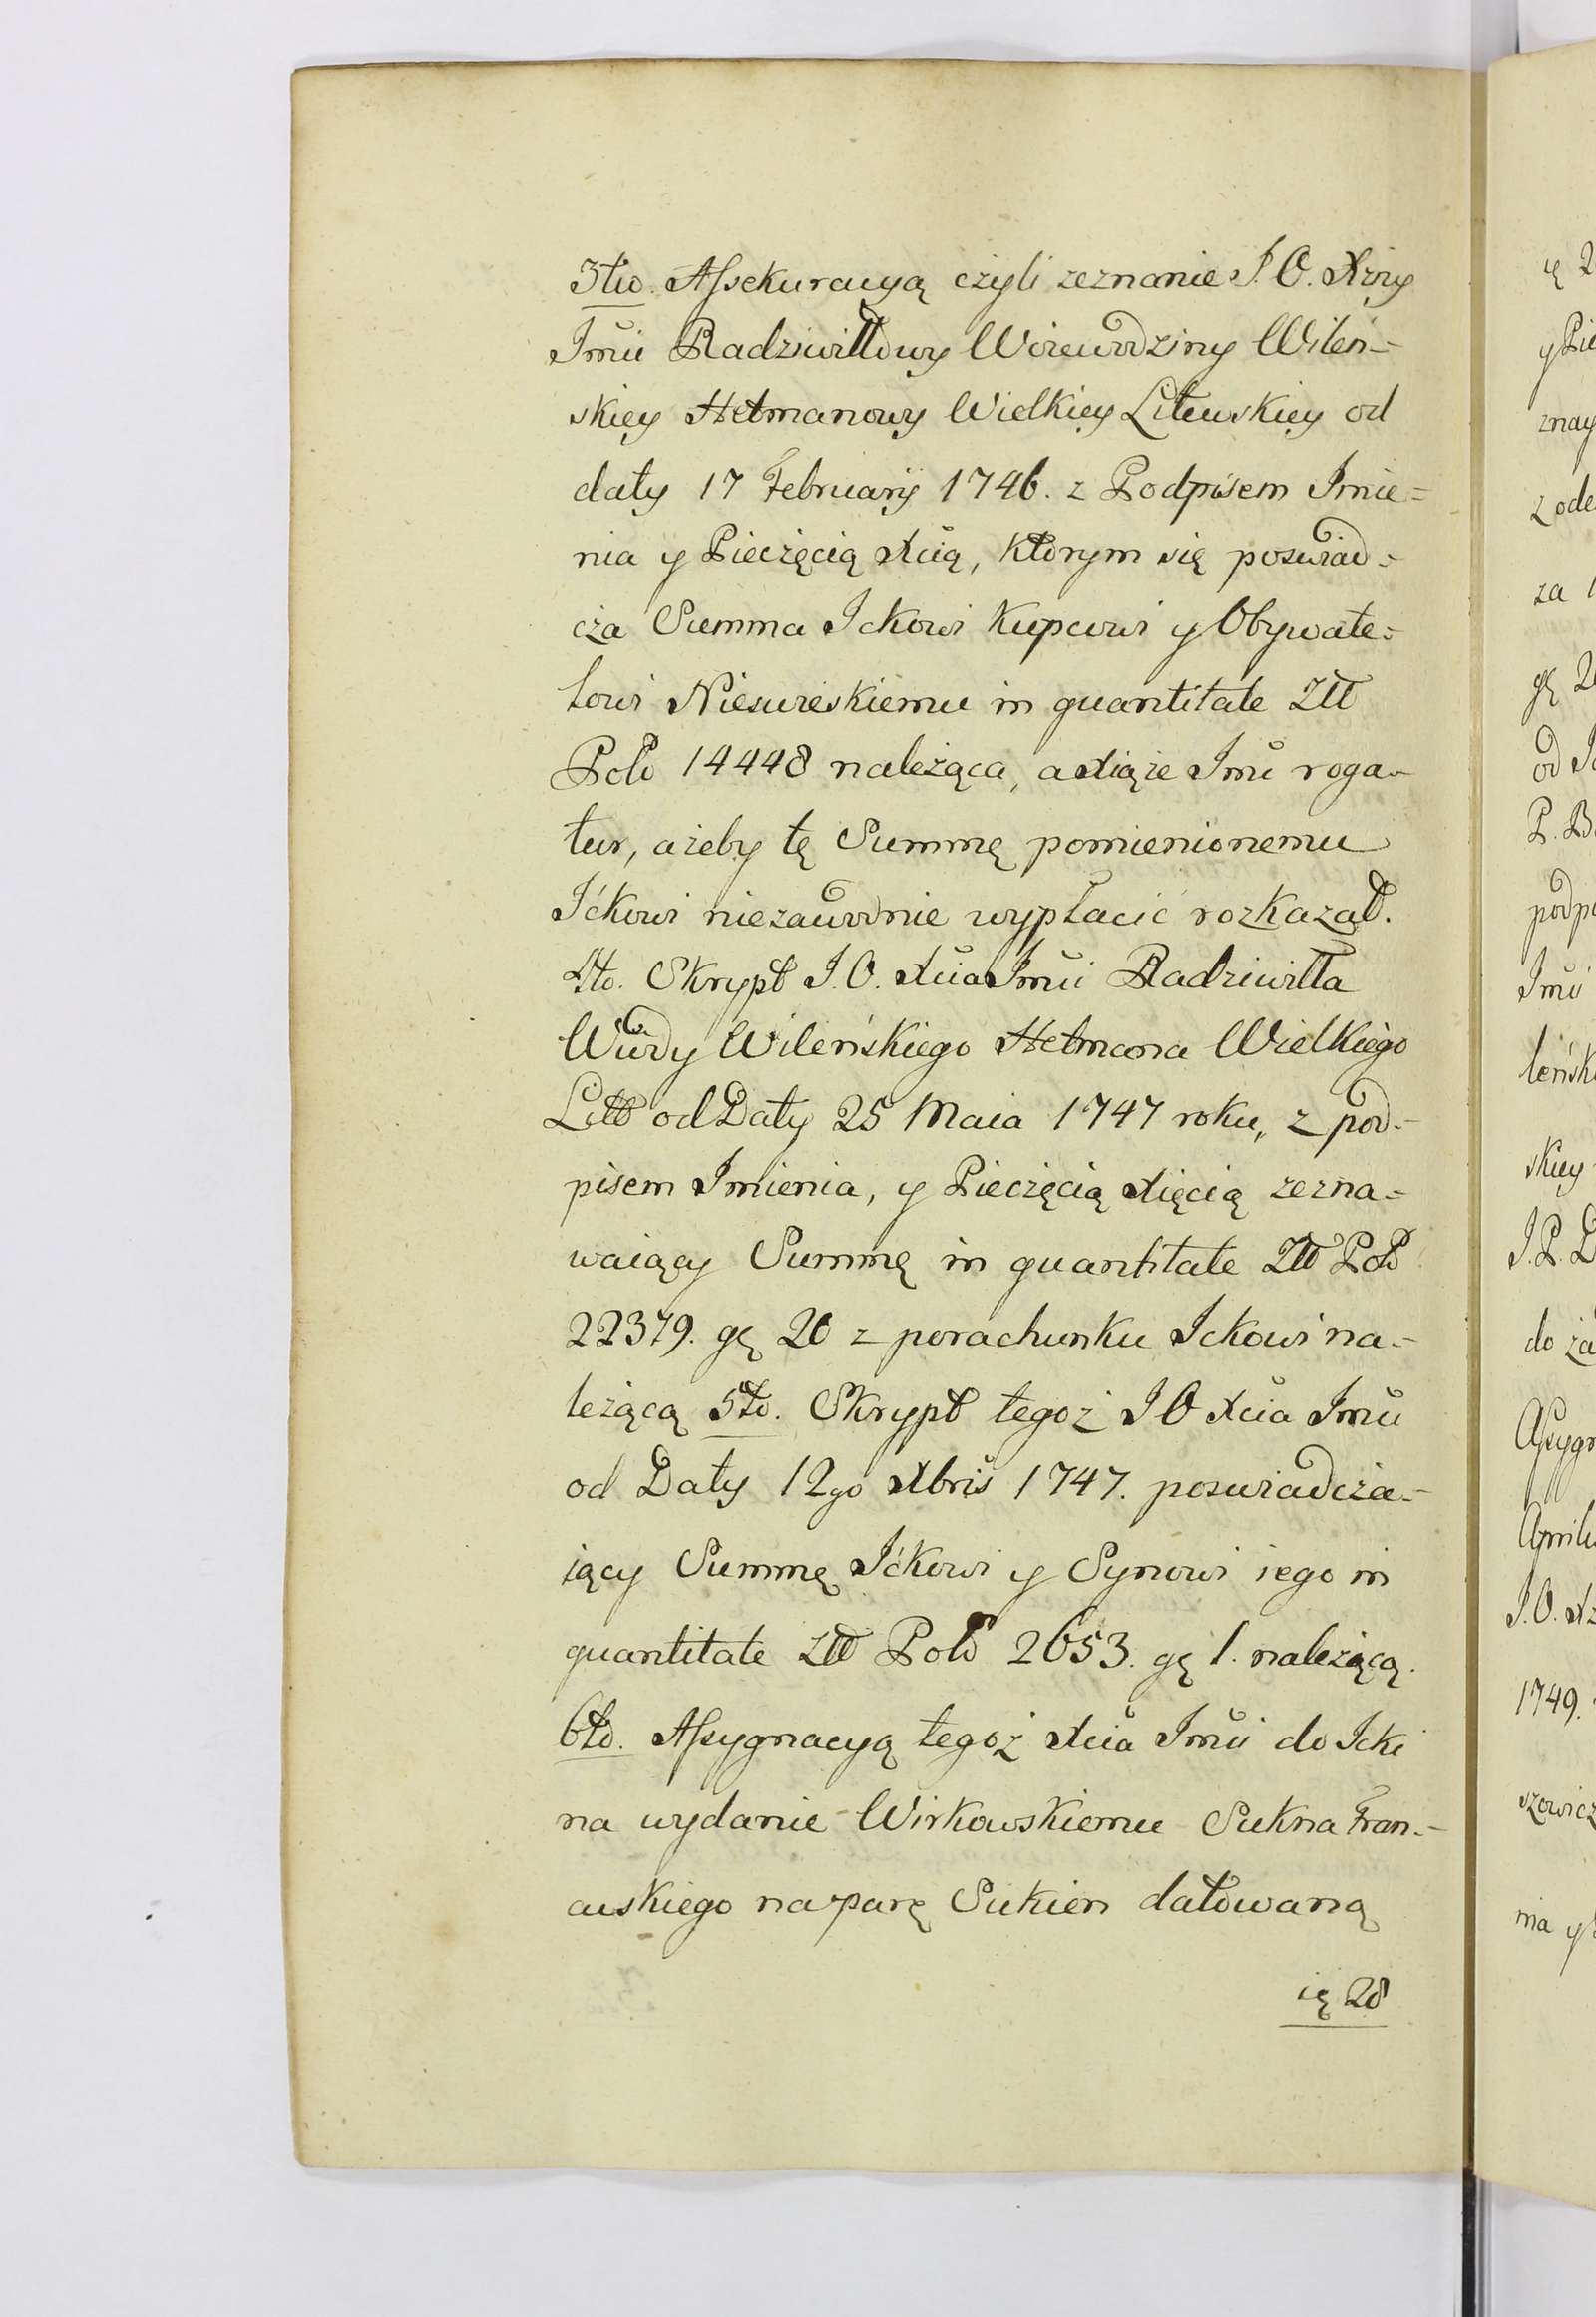 3tio. Assekuracyą czyli zeznanie J. O. Xżny
Jmći Radziwiłłowy Woiewodziny Wileń-
skiey Hetmanowy Wielkiey Litewskiey od
daty 17 Februarij 1746. z Podpisem Imie=
nia y Pieczęcią Xcią, ktorym się poswiad=
cza Summa Ickowi Kupcowi y Obywate=
lowi Nieswieskiemu in quantitate Złł
Pol 14448 należąca, a Xiąże Jmć roga-
tur, ażeby tę Summę pomienionemu
Ićkowi niezawodnie wypłacić rozkazał.
4to. Skrypt J. O. Xcia Jmći Radziwiłła
Wdy Wileńskiego Hetmana Wielkiego
Litt od Daty 25 Maia 1747 roku, z pod-
pisem Imienia, y Pieczęcią Xięcią zezna=
waiący Summę in quantitate Złł Pol
22379. gę 20 z porachunku Ickowi na-
leżącą 5to. Skrypt tegoż J O Xcia Jmći
od Daty 12go Xbris 1747. poswiadcza-
iący Summę Ićkowi y Synowi iego in
quantitate złł Pol 2653. gę 1. należącą.
6to. Assygnacyą tegoż Xcia Jmći do Icki
na wydanie Wirkowskiemu Sukna Fran-
cuskiego na parę Sukien datowaną
ię 28
ię 2
y Pie
znay
z ode
za 1
gę 2
od J
P. B
podp
Jmći
leńsk
skiey
J. P. D
do za
Assygn
Aprili
J. O. X
1749.
szowicz
nia y